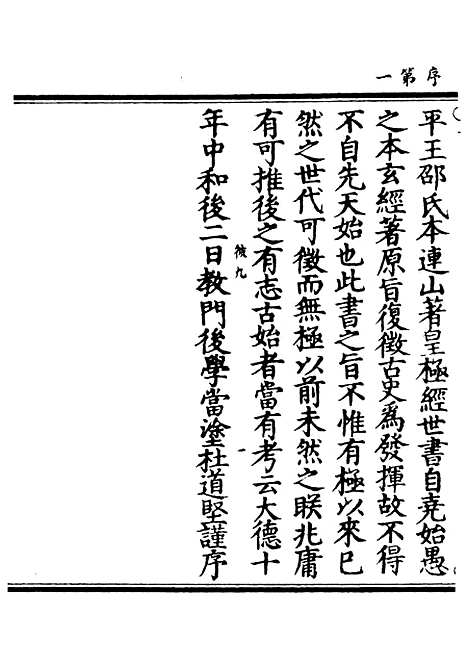 序第一
平王邵氏本連山著皇極經世書自堯始愚
之本玄經著原旨復徵古史爲發揮故不得
不自先天始也此書之旨不惟有極以來已
然之世代可徵而無極以前未然之眹兆庸
有可推後之有志古始者當有考云大德十
年中和後二日教門後學當塗杜道堅謹序
彼九